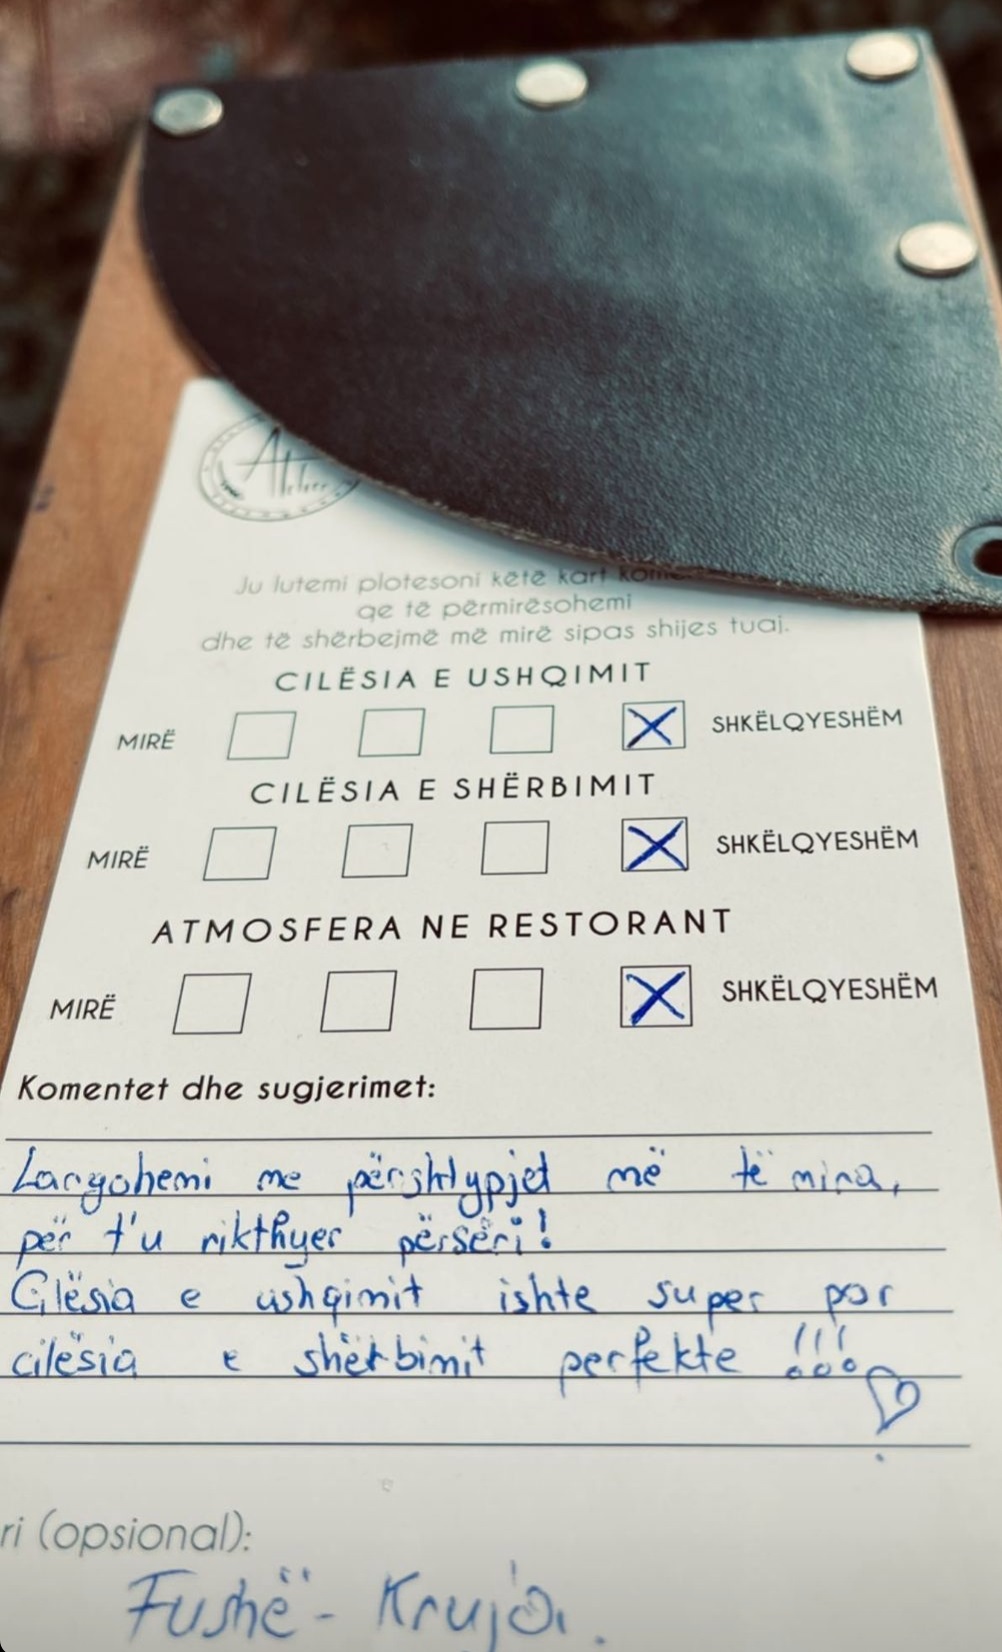 Atelier
Ju lutemi plotesoni këtë kart
qe të përmirësohemi
dhe të shërbejmë më mirë sipas shijes tuaj.
CILËSIA E USHQIMIT
MIRË SHKËLQYESHËM
CILËSIA E SHËRBIMIT
MIRË SHKËLQYESHËM
ATMOSFERA NE RESTORANT
MIRË SHKËLQYESHËM
Komentet dhe sugjerimet:
Largohemi me përshtypjet më të mira,
për t'u rikthyer përsëri!
Cilësia e ushqimit ishte super por
cilësia e shërbimit perfekte !!!
(opsional):
Fushë - Kruja.